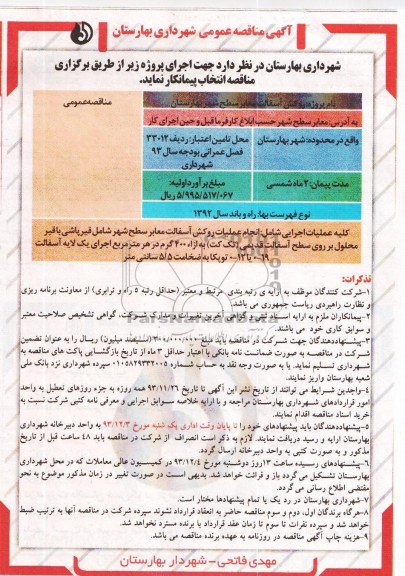 آگهی مناقصه عمومی شهرداری بهارستان
شهرداری بهارستان در نظر دارد جهت اجرای پروژه زیر از طریق برگزاری
مناقصه انتخاب پیمانکار نماید.
نام پروژه: روکش آسفالت معابر سطح شهر بهارستان
مناقصه عمومی
به آدرس: معابر سطح شهر حسب ابلاغ کارفرما قبل و حین اجرای کار
واقع در محدوده: شهر بهارستان
محل تامین اعتبار: ردیف ۳۳۰۱۲
فصل عمرانی بودجه سال ۹۳
شهرداری
مدت پیمان: ۲ ماه شمسی
مبلغ برآورد اولیه:
۵/۹۹۵/۵۱۷/۰۶۷ ریال
نوع فهرست بها: راه و باند سال ۱۳۹۳
کلیه عملیات اجرایی شامل: انجام عملیات روکش آسفالت معابر سطح شهر شامل قیرپاشی با قیر
محلول بر روی سطح آسفالت قدیمی (تک کت) به ازاء ۴۰۰ گرم در هر متر مربع اجرای یک لایه آسفالت
۱۹-۰ یا ۱۲-۰ توپکا به ضخامت ۵/۵ سانتی متر
تذکرات:
۱-شرکت کنندگان موظف به ارایه ی رتبه بندی مرتبط و معتبر (حداقل رتبه ۵ راه و ترابری) از معاونت برنامه ریزی
و نظارت راهبردی ریاست جمهوری می باشد.
۲-پیمانکاران ملزم به ارایه اسناد ثبتی و گواهی آخرین تغییرات و مدارک شرکت، گواهی تشخیص صلاحیت معتبر
و سوابق کاری خود می باشند.
۳-پیشنهاددهندگان جهت شرکت در مناقصه باید مبلغ ۳۰۰/۰۰۰/۰۰۰ (سیصد میلیون) ریال را به عنوان تضمین
شرکت در مناقصه به صورت ضمانت نامه بانکی با اعتبار حداقل ۳ ماه از تاریخ بازگشایی پاکت های مناقصه به
شهرداری تسلیم نماید. یا به صورت وجه نقد به حساب شماره سپرده شهرداری نزد بانک ملی
شعبه بهارستان واریز نمایند.
۴-واجدین شرایط می توانند از تاریخ نشر این آگهی تا تاریخ ۹۳/۱۱/۲۶ همه روزه به جزء روزهای تعطیل به واحد
امور قراردادهای شهرداری بهارستان مراجعه و با ارایه خلاصه سوابق اجرایی و معرفی نامه کتبی شرکت نسبت به
خرید اسناد مناقصه اقدام نمایند.
۵-پیشنهاددهندگان باید پیشنهادهای خود را تا پایان وقت اداری یک شنبه مورخ ۹۳/۱۲/۳ به واحد دبیرخانه شهرداری
بهارستان ارایه و رسید دریافت نمایند. لازم به ذکر است انصراف از شرکت در مناقصه باید ۴۸ ساعت قبل از تاریخ
مذکور و به صورت کتبی به واحد دبیرخانه ارسال گردد.
۶-پیشنهادهای رسیده ساعت ۱۳ روز دوشنبه مورخ ۹۳/۱۲/۴ در کمیسیون عالی معاملات که در محل شهرداری
بهارستان تشکیل می گردد باز و قرائت خواهد شد. بدیهی است در صورت تغییر در زمان مذکور موضوع به نحو
مقتضی اطلاع رسانی می گردد.
۷-شهرداری بهارستان در رد یک یا تمام پیشنهادها مختار است.
۸-هرگاه برندگان اول، دوم و سوم مناقصه حاضر به انعقاد قرارداد نشوند سپرده شرکت در مناقصه آنها به ترتیب ضبط
خواهد شد و سپرده نفرات تا سوم تا زمان عقد قرارداد با برنده مسترد نخواهد شد.
۹-هزینه چاپ آگهی مناقصه در روزنامه به عهده برنده مناقصه می باشد.
مهدی فاتحی - شهردار بهارستان